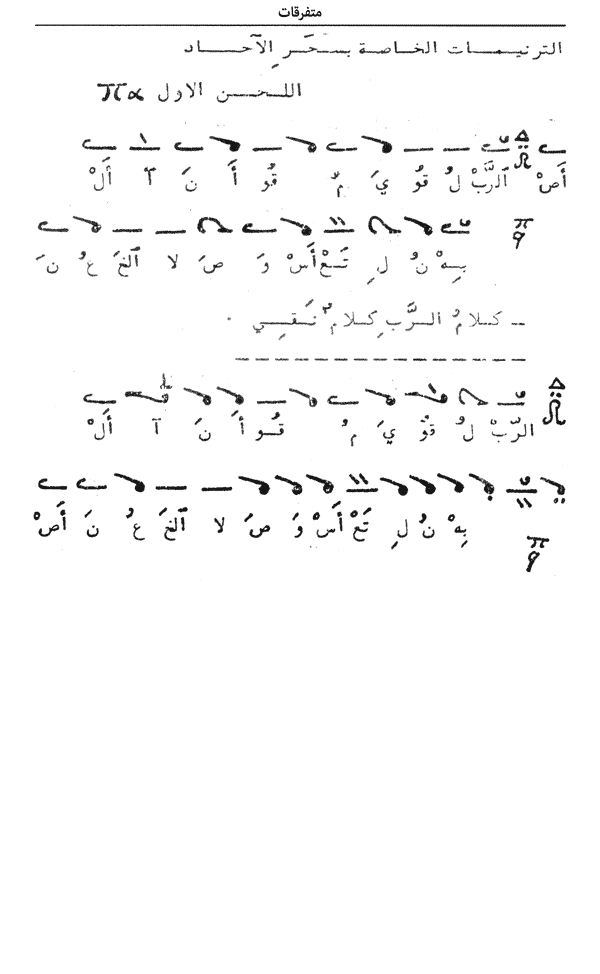 متفرقات
الترنيمات الخاصة بسحَر الآحاد
اللحن الاول πα
أَصْ أَلرَّبْ لُ قُو يَ مُ قُو أَ نَ آ أَلْ
بِهْ نُ لِ تَعْ أَسْ وَ صَ لا اَلغَ عُ نَ
ــ كلامُ الرَّب كلامٌ نَقي .
الرّبْ لُ قوُ يَ مُ قُو أَ نَ آ أَلْ
بِهْ نُ لِ تَعْ أَسْ وَ صَ لا اَلغَ عُ نَ أَصْ